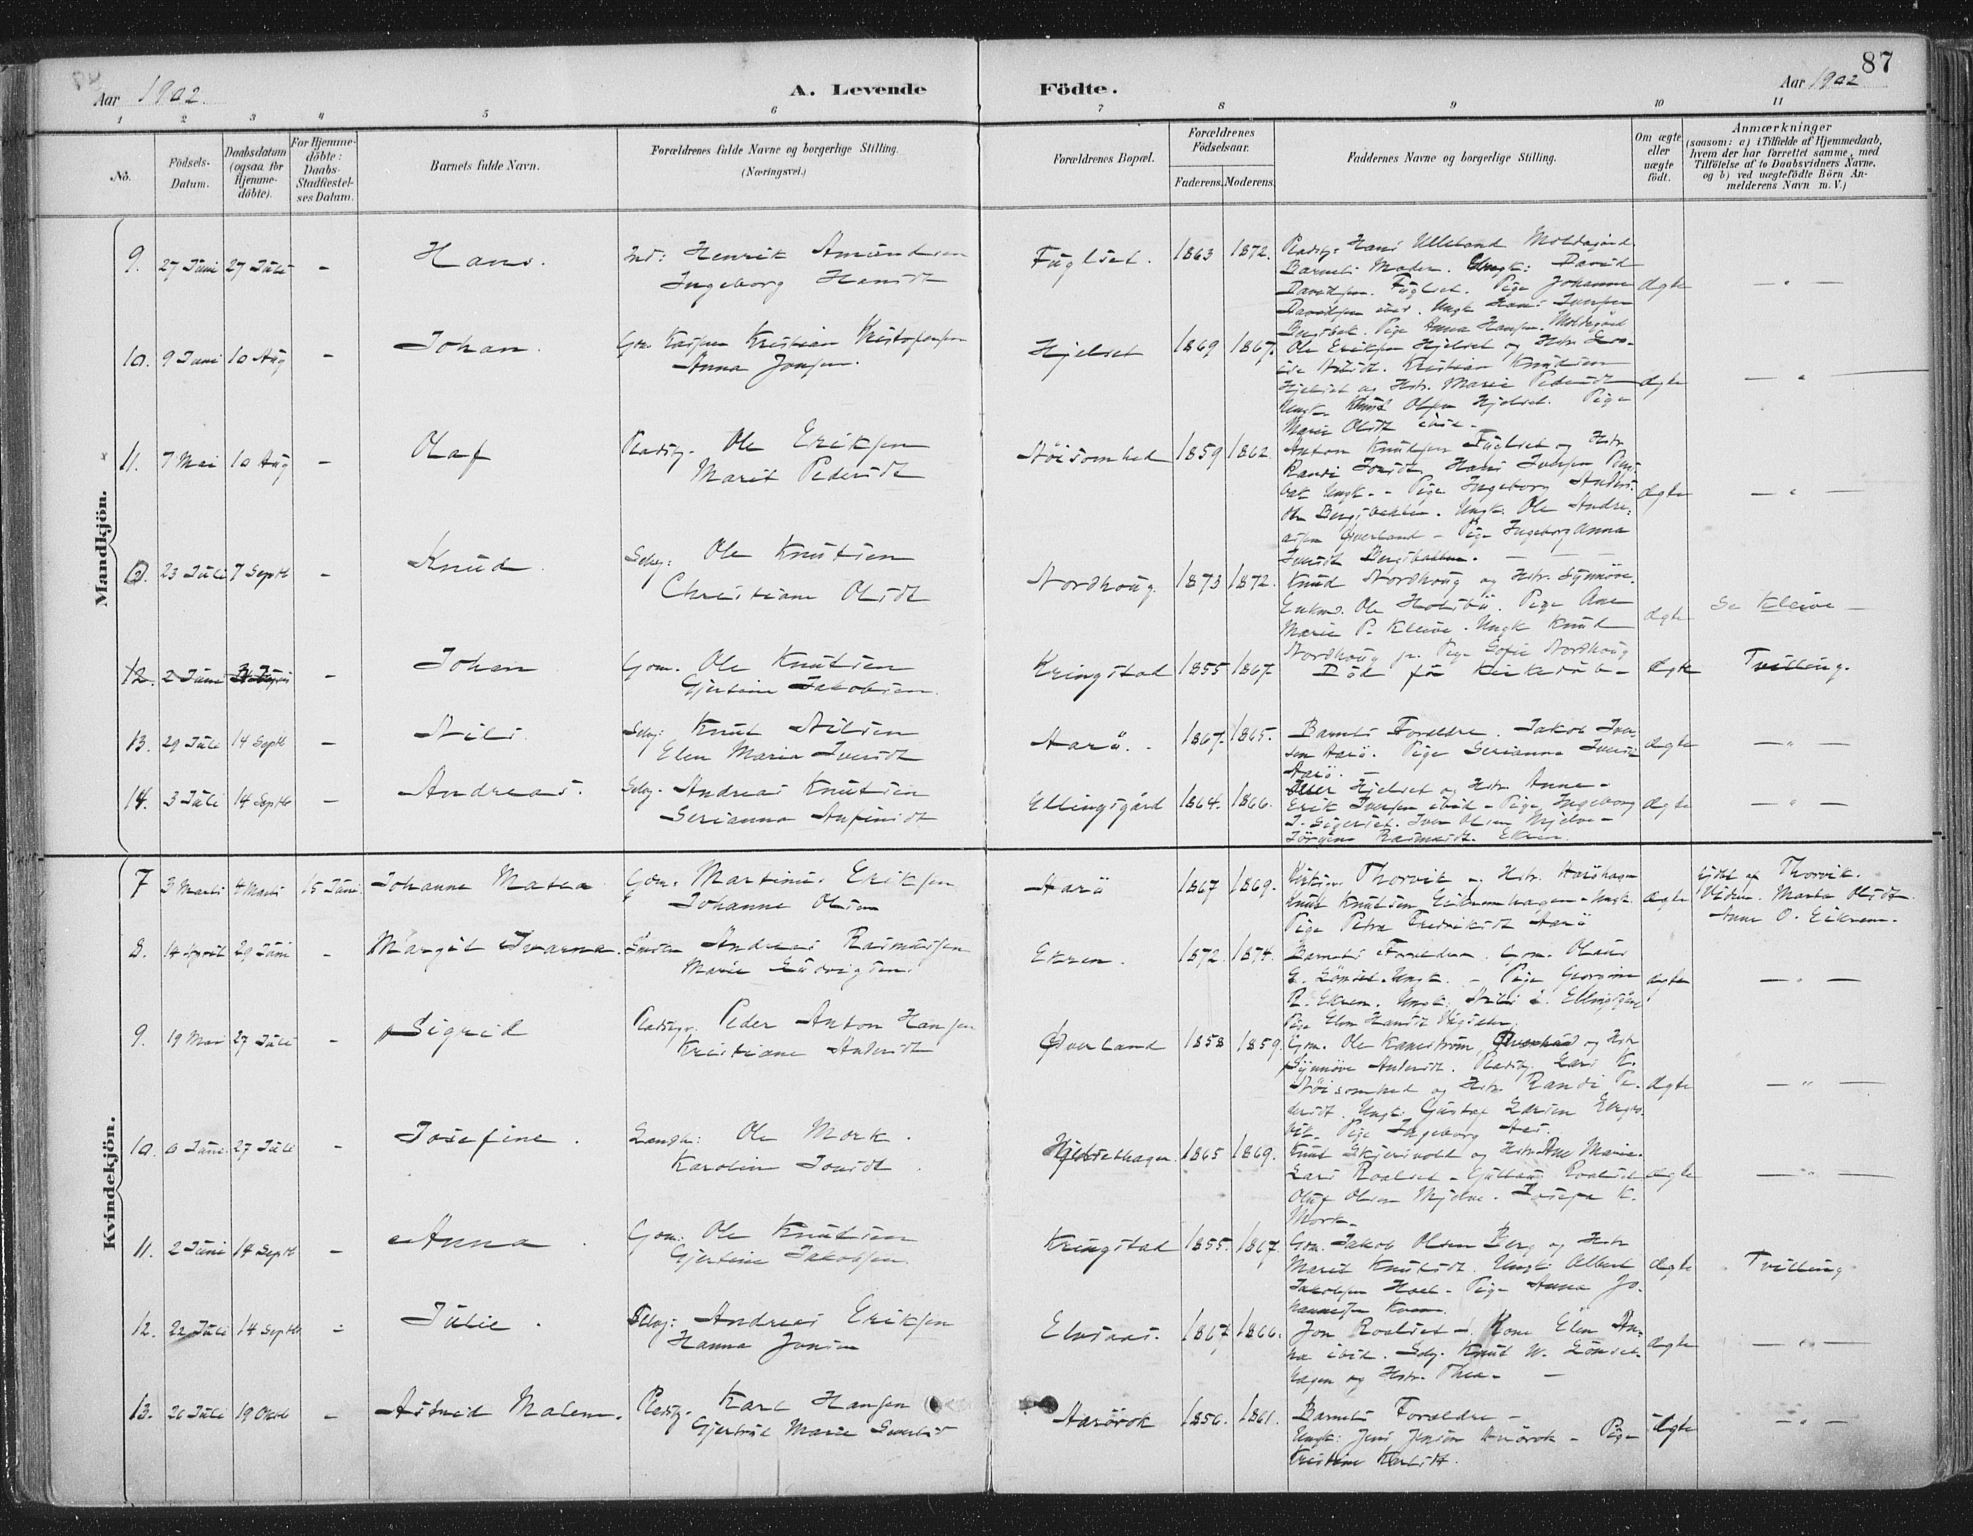 87
Aar 1902.
A. Levende Födte.
Aar 1902
1 2 3 4 5 6 7 8 9 10 11
No.
Födsels-Datum.
Daabsdatum (ogsaa for Hjemme-döbte).
For Hjemme-döbte: Daabs-Stadfæstel-ses Datum.
Barnets fulde Navn.
Forældrenes fulde Navne og borgerlige Stilling.
(Næringsvei.)
Forældrenes Bopæl.
Forældrenes Födselsaar.
Faderens. Moderens.
Faddernes Navne og borgerlige Stilling.
Om ægte eller uægte födt.
Anmærkninger
(saasom: a) i Tilfælde af Hjemmedaab,
hvem der har forrettet samme, med
Tilföielse af to Daabsvidners Navne.
og b) ved uægtefödte Börn An-
melderens Navn m. V.)
Mandkjön.
9. 27 Juni 27 Juli - Hans. Ind: Henrik Amundsen
Ingeborg Hansdt
Fuglset. 1863 1872.
Hans Ulleland Moldegård
Barnets Moder. Ungk: David
Davidsen. Fuglset. Pige Johanne
Davidsen ibid. Ungk Hans Iversen
Pige Anna Hansen. Moldegård
ægte — " —
10. 9 Juni 10 Aug - Johan. Gm. Kaspar Kristian Kristofersen
Anna Jonsen.
Hjelset 1869 1867.
Ole Eriksen Hjelset og Hstr.
Kristian Knudsen
Hjelset og Hstr. Marie Pedersdt
Ungk. Knud Olsen Hjelset. Pige
Marie Olsdt ibid.
ægte — " —
11. 7 Mai 10 Aug - Olaf Pladsg. Ole Eriksen
Marit Pedersdt
Nöisomhed 1859 1862.
Anton Knudsen Fuglset og Hstr
Randi Jonsdt. Hans Iversen
Ungk. - Pige Ingeborg
Bergsbakken. Ungk: Ole Andre-
asen Øverland - Pige Ingeborg Anna
Iversdt Bergsbakken. — — —
ægte — " —
23 Juli 7 Septb - Knud. Selvg: Ole Knutsen
Christiane Olsdt
Nordhoug. 1873 1872.
Knud Nordhoug og Hstr. Synnöve.
Enkem. Ole Holsbö. Pige Ane
Marie P. Kleive. Ungk Knud
Nordhoug jr. Pige Sofie Nordhoug
ægte Se Kleive —
12. 2 Juni - Johan Gom. Ole Knutsen
Gjertine Jakobsen.
Kringstad 1855 1867.
Död før Kirkedåb -
ægte Tvilling.
13. 29 Juli 14 Septb - Nils. Selvg: Knut Nilsen
Elen Marie Iversdt
Aarö. 1867. 1865.
Barnets Foreldre. Jakob Iver-
sen Aarö. Pige Serianna Iversdt
Aarö.
ægte — " —
14. 3 Juli 14 Septb - Andreas. Selvg. Andreas Knutsen
Serianna Anfinsdt
Ellingsgård 1864. 1866.
Hjelset og Hstr. Anne -
Erik Iversen ibid - Pige Ingeborg
Iver Olsen Mjelve -
Jörgine Rasmusdt. Ekren.
ægte — " —
Kvindekjön.
7 3 Marts 4 Marts 15 Juni Johanne Matea Gom. Martinus Eriksen
Johanne Olsen
Aarö 1867 1869.
Thorvik og Hstr.
Knut Knutsen Eikremhagen - Ungk.
Pige Petra Fredriksdt Aarö
ægte
döbt af Thorvik.
Vidner. Marta Olsdt
Anne O. Eikrem.
8. 14 April 29 Juni - Margit Ivarna. Andreas Rasmussen
Marie Ludvigsen.
Ekren. 1872. 1874.
Barnets Foreldre. Gom. Olaus
E. Lönset. Ungk. - Pige Georgine
R. Ekren. Ungk: Nils L. Ellingsgård
Pige Elen Hansdt
ægte — " —
9. 19 Mai 27 Juli - Sigrid Pladsgr. Peder Anton Hansen
Kristiane Andersdt
Øverland 1858 1859
Gom. Ole Kanestrøm, Øverland og Hstr
Synnöve Andersdt. Pladsg. Lars K.
Nöisomhed og Hstr. Randi Pe-
dersdt. Ungk. Gustav Larsen
Pige Ingeborg
ægte — " —
10. 6 Juni. 27 Juli - Josefine. Landh: Ole Mork.
Karolin Jonsdt.
Hjelsethagen 1865 1869.
Knut Skjersvolt og Hstr. Ane Marie.
Lars Roalset - Roalset
Oluf Olsen Mjelve. Josefa K.
Mork -
ægte — " —
11. 2 Juni 14 Septb - Anna Gom: Ole Knutsen
Gjertine Jakobsen.
Kringstad 1855. 1867
Gom. Jakob Olsen Berg og Hstr
Marit Knutsdt. Ungk: Albert
Jakobsen Hoel. Pige Anna Jo-
hannesen Kvam.
ægte Tvilling
12. 22 Juli 14 Septb. - Julie. Selvg: Andreas Eriksen
Hanna Jonsen
Elvsaas. 1867 1866.
Jon Roalset - Kone Elen An-
na ibid. Selvg. Knud W. Lönset-
hagen og Hstr. Thea -
ægte — " —
13. 20 Juli 19 Oktb - Astrid Malene. Pladsg. Karl Hansen
Gjertrud Marie Sivertsdt
Aarövok 1856. 1861.
Barnets Forældre -
Ungk: Jens Jensen Aarövok - Pige
Kristine Karlsdt.
ægte — " —